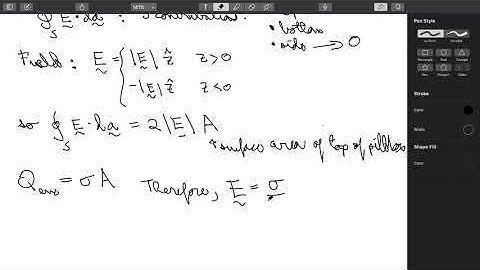 ∮_S E · da : 3 contributions
• bottom
• side → 0
Field: E = { |E| ẑ z > 0
-|E| ẑ z < 0
so ∮_S E · da = 2|E| A
surface area of top of pillbox
Q_enc = σA Therefore, E = σ
Pen Style
Rectangle Oval Triangle
Stroke
Color
Width
Shape Fill
Color